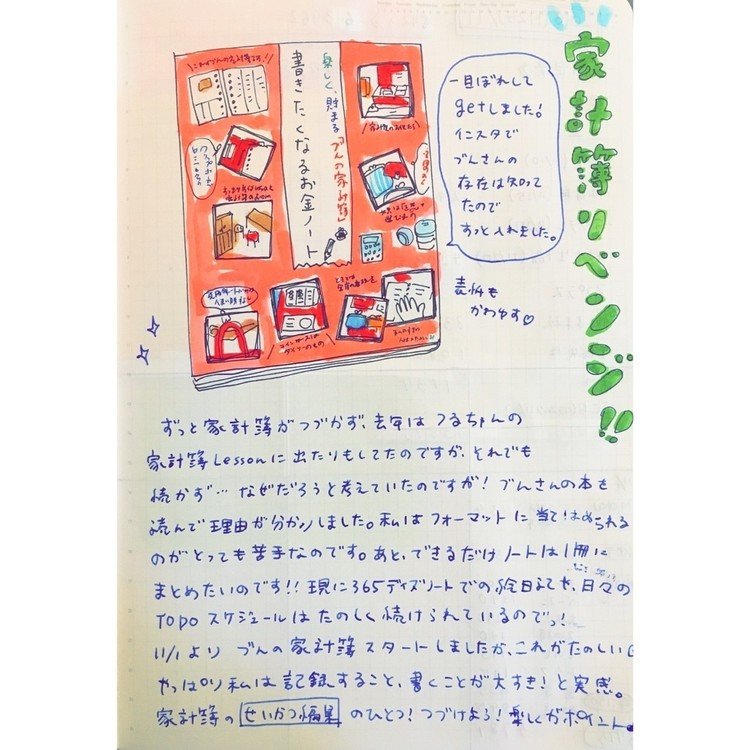 家計簿リベンジ!!
楽しく、貯まる「づんの家計簿」
書きたくなるお金ノート
一目ぼれして
getしました!
インスタで
づんさんの
存在は知って
たので
すっと入れました。
表紙も
かわゆす♡
ずっと家計簿がつづかず、去年はつるちゃんの
家計簿Lessonに出たりもしてたのですが、それでも
続かず…なぜだろうと考えていたのですが!づんさんの本を
読んで理由が分かりました。私はフォーマットに当てはめられる
のがとっても苦手なのです。あと、できるだけノートは1冊に
まとめたいのです!!現に365デイズノートでの絵日記や、日々の
TODOスケジュールはたのしく続けられているのでっ!
11/1よりづんの家計簿スタートしましたが、これがたのしい
やっぱり私は記録すること、書くことが大すき!と実感。
家計簿のせいかつ編集のひとつ!つづけよう!楽しくがポイント。